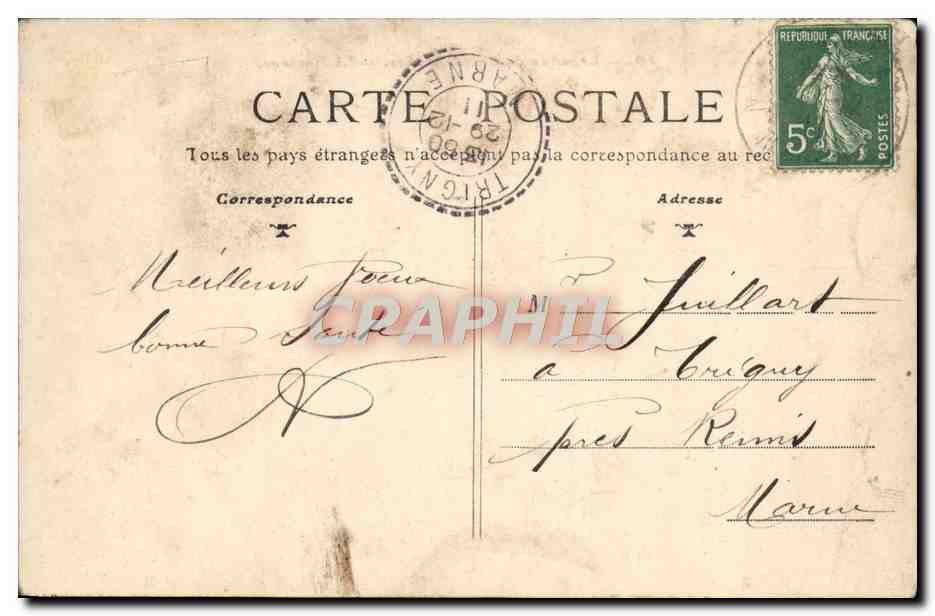 RÉPUBLIQUE FRANÇAISE
5c
POSTES
CARTE POSTALE
Tous les pays étrangers n'acceptent pas la correspondance au rec
TRIGNY
MARNE
29-12
11
Correspondance
Adresse
Meilleurs Voeux
bonne Santé
Mr Juillart
à Trigny
près Reims
Marne
CRAPHIL